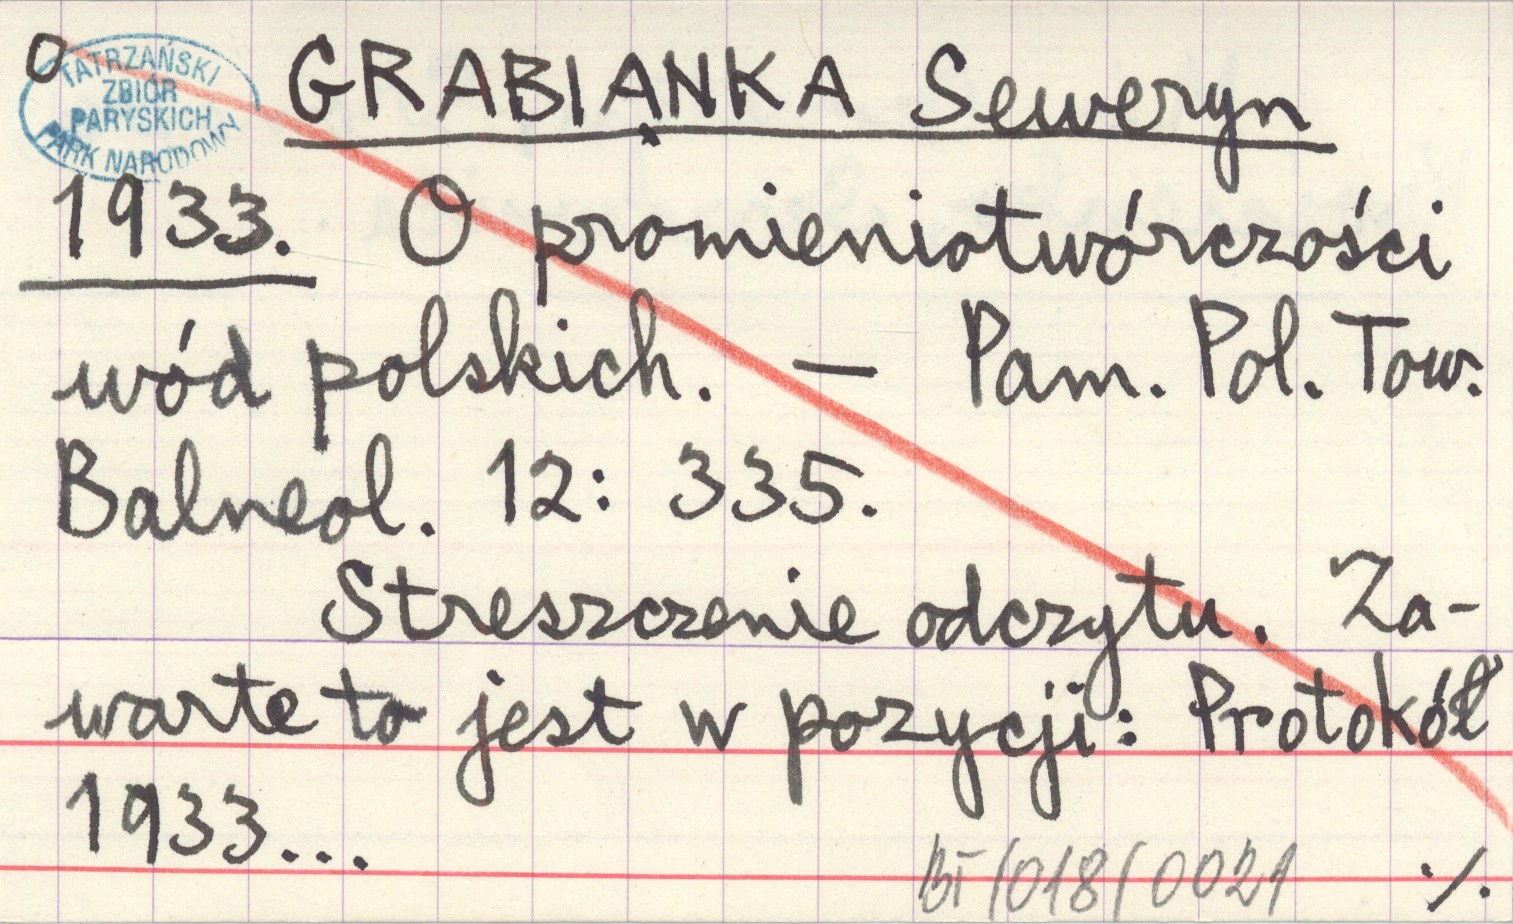 O
TATRZAŃSKI
ZBIÓR
PARYSKICH
PARK NARODOWY
GRABIĄNKA Seweryn
1933. O promieniotwórczości
wód polskich. — Pam. Pol. Tow.
Balneol. 12: 335.
Streszczenie odczytu. Za-
warte to jest w pozycji: Protokół
1933...
BI/018/0021
./.